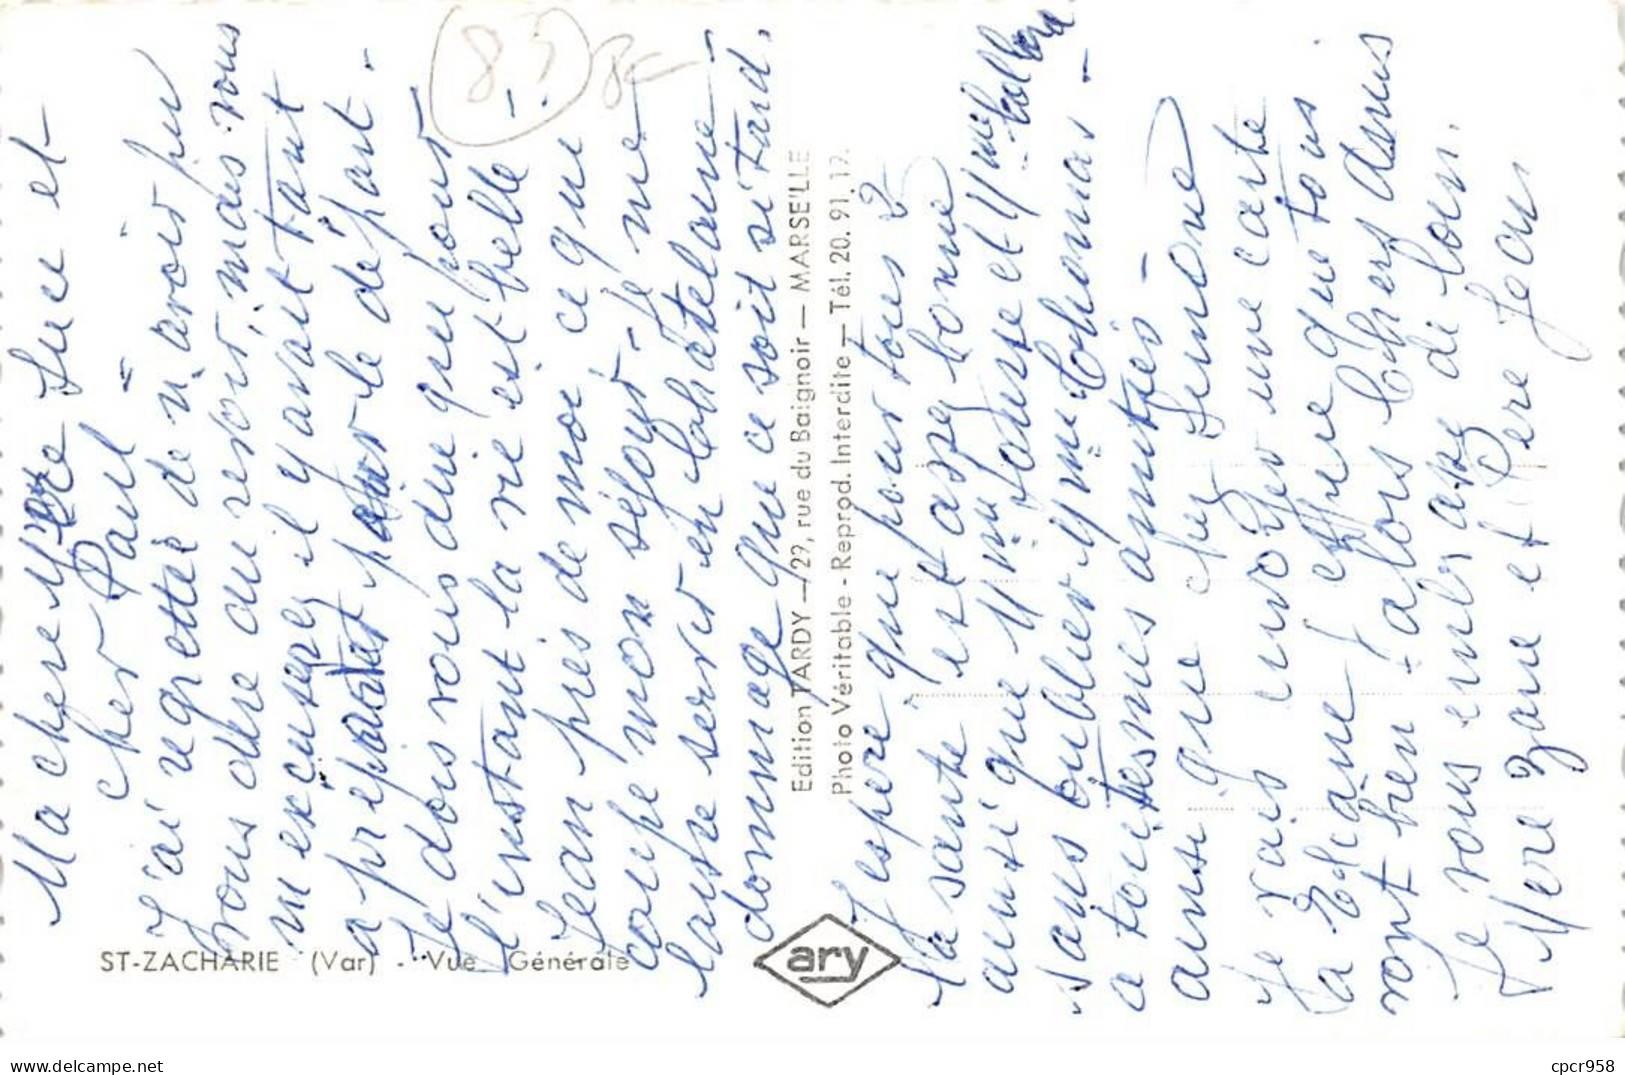 Ma chere Mère Luce et
cher Paul –
J'ai regretté de n'avoir pu
vous dire au revoir, mais vous
m'excuserez il y avait tant
a préparer pour le départ –
Je dois vous dire que pour
l'instant la vie est belle –
Jean près de moi ce qui
coupe mon séjour – Je me
laisse servir en Châtelaine –
dommage que ce soit si tard.
J'espère que pour tous 2
la santé est assez bonne
ainsi que Mme et Mme
sans oublier Mme Thomas –
a toutes mes amitiés –
ainsi que chez Simone
Je vais envoyer une carte
a J'espère que tous
vont bien – alors Chers Amis
Je vous embrasse de loin.
Mere Zane et Pere Jean
83
BF
Edition TARDY — 29, rue du Baignoir — MARSEILLE
Photo Véritable - Reprod. Interdite — Tél. 20. 91. 12.
ST-ZACHARIE (Var) - Vue Générale
ary
delcampe.net
cpcr958